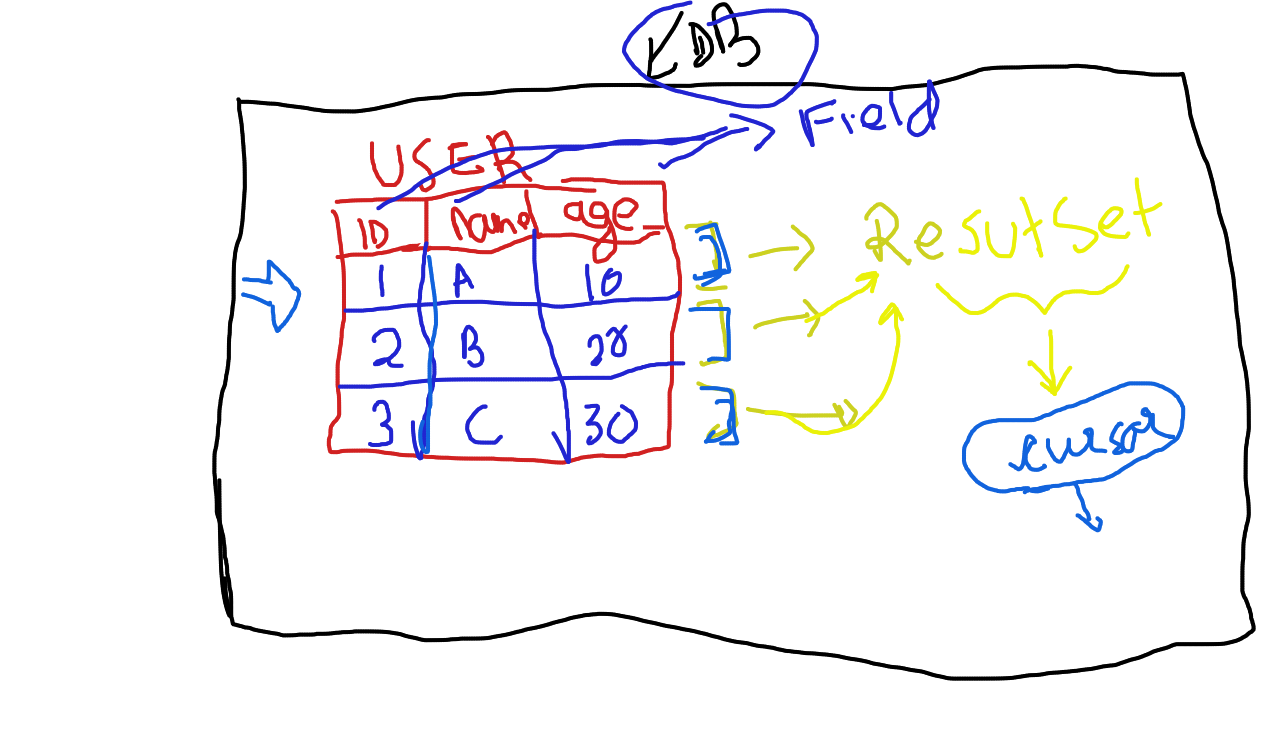 KDB
Field
USER
ID Name age
1 A 10
2 B 28
3 C 30
ResutSet
cursor